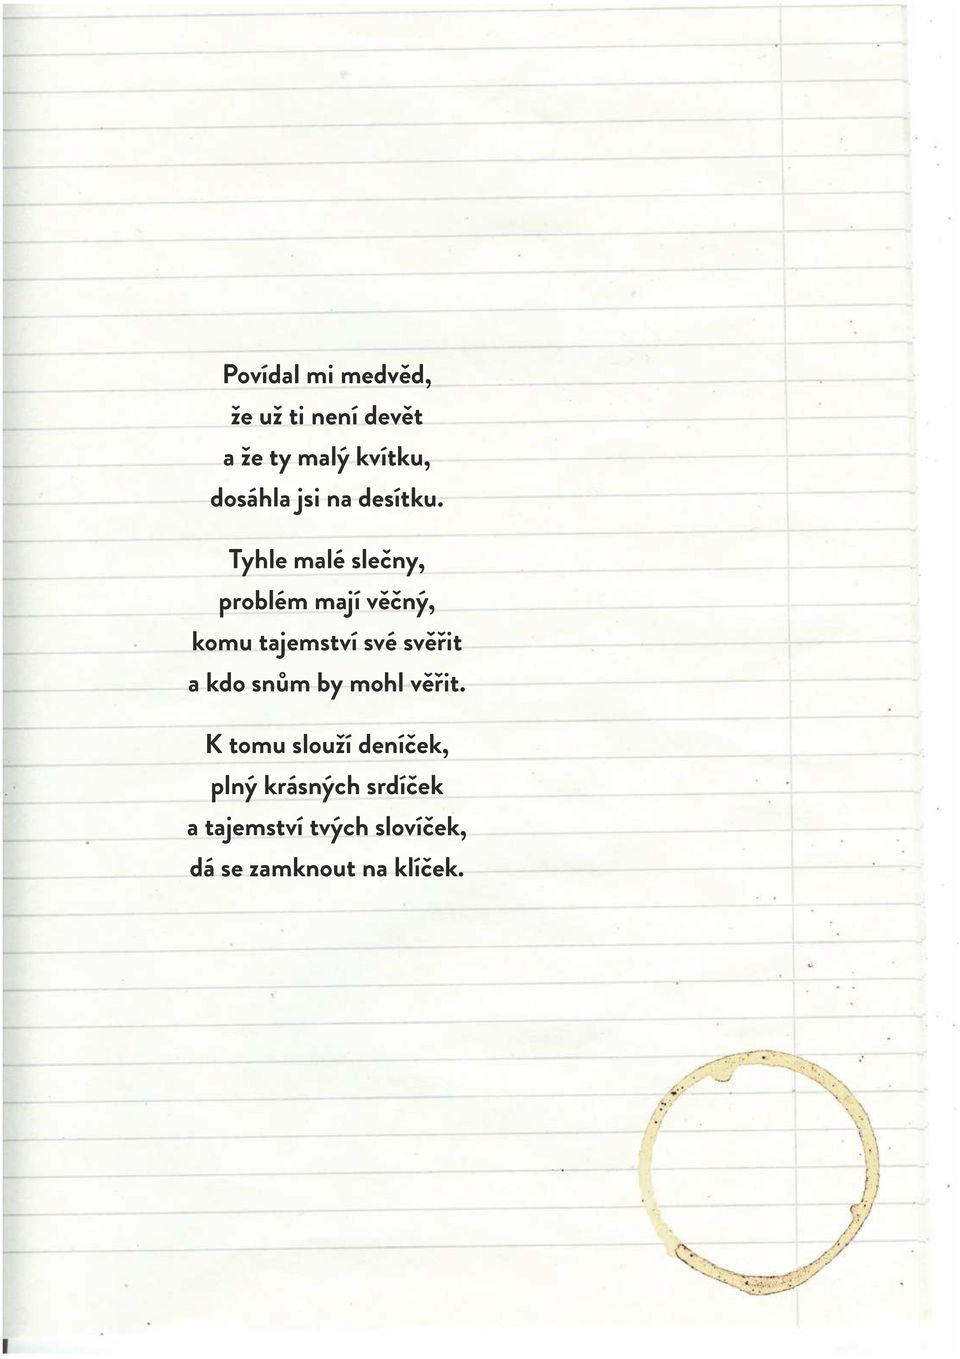 Povídal mi medvěd,
že už ti není devět
a že ty malý kvítku,
dosáhla jsi na desítku.
Tyhle malé slečny,
problém mají věčný,
komu tajemství své svěřit
a kdo snům by mohl věřit.
K tomu slouží deníček,
plný krásných srdíček
a tajemství tvých slovíček,
dá se zamknout na klíček.